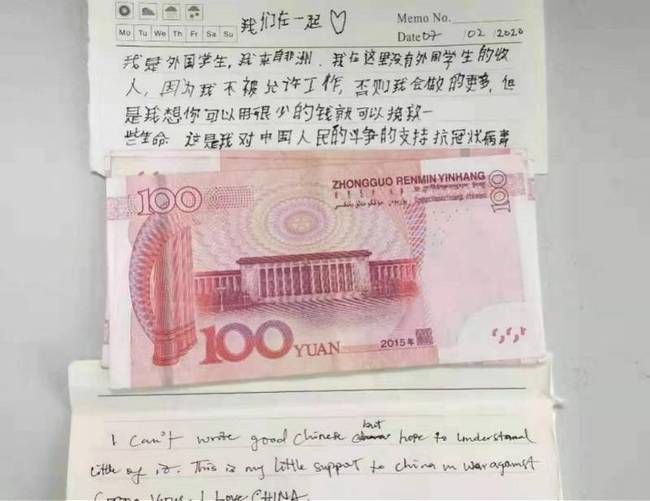 我们在一起♡
Memo No.
Mo Tu We Th Fr Sa Su
Date 07 / 02 / 2020
我是外国学生，我来自非洲，我在这里没有外国学生的收
人，因为我不被允许工作，否则我会做的更多，但
是我想你可以用很少的钱就可以拯救一
些生命 这是我对中国人民的斗争的支持 抗冠状病毒
100
ZHONGGUO RENMIN YINHANG
100
100 YUAN
2015年
I can't wrote good chinese but hope to understand
little of it. This is my little support to china in war against
Corona Virus. I Love CHINA.